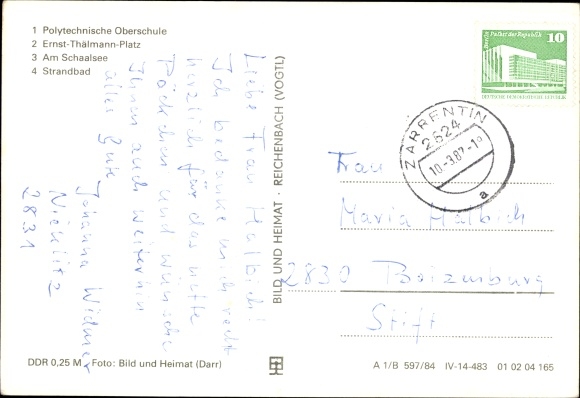 1 Polytechnische Oberschule
2 Ernst-Thälmann-Platz
3 Am Schaalsee
4 Strandbad
Liebe Frau Halbich!
Ich bedanke mich recht
herzlich für das nette
Päckchen und wünsche
Ihnen auch weiterhin
alles Gute
Johanna Widmer
2831
BILD UND HEIMAT · REICHENBACH (VOGTL)
Berlin Palast der Republik 10
DEUTSCHE DEMOKRATISCHE REPUBLIK
ZARRENTIN
2824
10.-3.87-1
a
Frau
Maria Halbich
2830 Boizenburg
Stift
DDR 0,25 M · Foto: Bild und Heimat (Darr)
A 1/B 597/84 IV-14-483 01 02 04 165